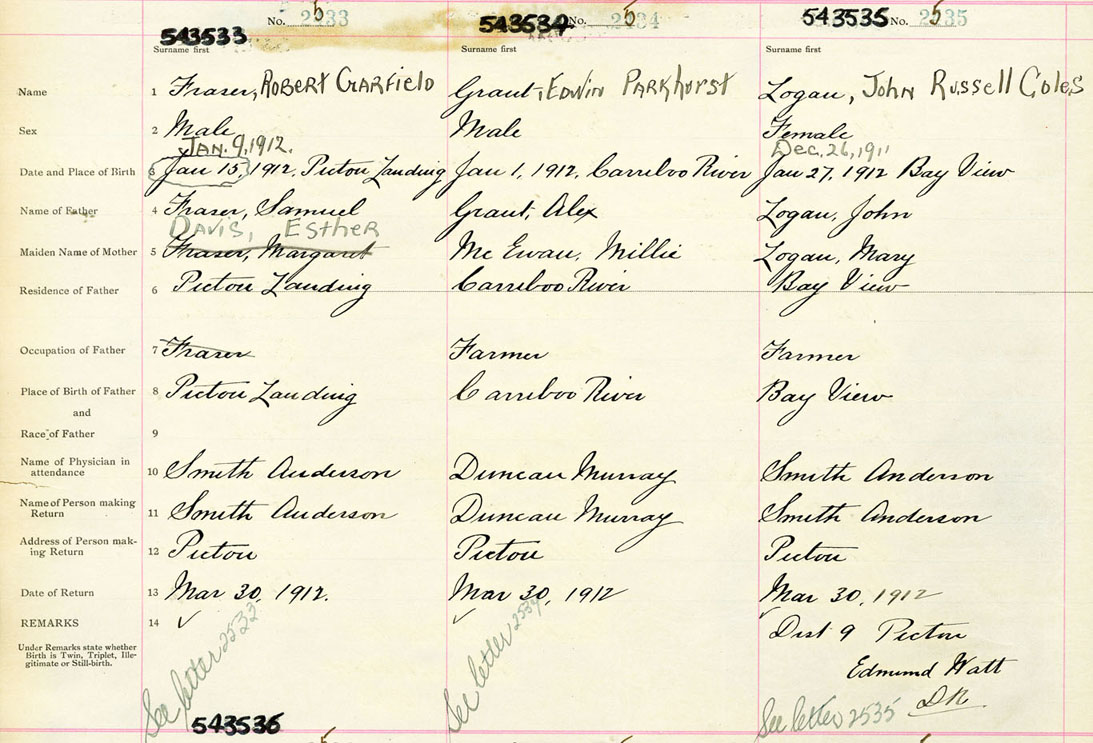 543533 No. 2533
543534 No. 2534
543535 No. 2535
Surname first
Surname first
Surname first
Name 1 Fraser, Robert Garfield
Grant, Edwin Parkhurst
Logan, John Russell Coles
Sex 2 Male
Male
Female
Jan. 9, 1912.
Dec. 26, 1911
Date and Place of Birth 3 Jan 15, 1912, Pictou Landing
Jan 1, 1912, Carreboo River
Jan 27, 1912 Bay View
Name of Father 4 Fraser, Samuel
Grant, Alex
Logan, John
Davis, Esther
Maiden Name of Mother 5 Fraser, Margaret
Mc Ewan, Millie
Logan, Mary
Residence of Father 6 Pictou Landing
Carreboo River
Bay View
Occupation of Father 7 Fraser
Farmer
Farmer
Place of Birth of Father 8 Pictou Landing
Carreboo River
Bay View
and
Race of Father 9
Name of Physician in
attendance 10 Smith Anderson
Duncan Murray
Smith Anderson
Name of Person making
Return 11 Smith Anderson
Duncan Murray
Smith Anderson
Address of Person mak-
ing Return 12 Pictou
Pictou
Pictou
Date of Return 13 Mar 30, 1912.
Mar 30, 1912
Mar 30, 1912
REMARKS 14 ✓
✓
Dist 9 Pictou
Under Remarks state whether
Birth is Twin, Triplet, Ille-
gitimate or Still-birth.
Edmund Watt
DR
See letter 2533
See letter 2534
See letter 2535
543536